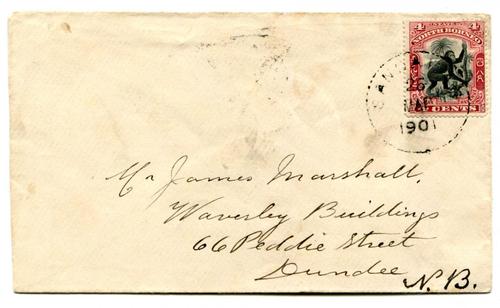 STATE OF
NORTH BORNEO
4 CENTS
1901
Mr James Marshall,
Waverley Buildings
66 Peddie Street
Dundee N.B.